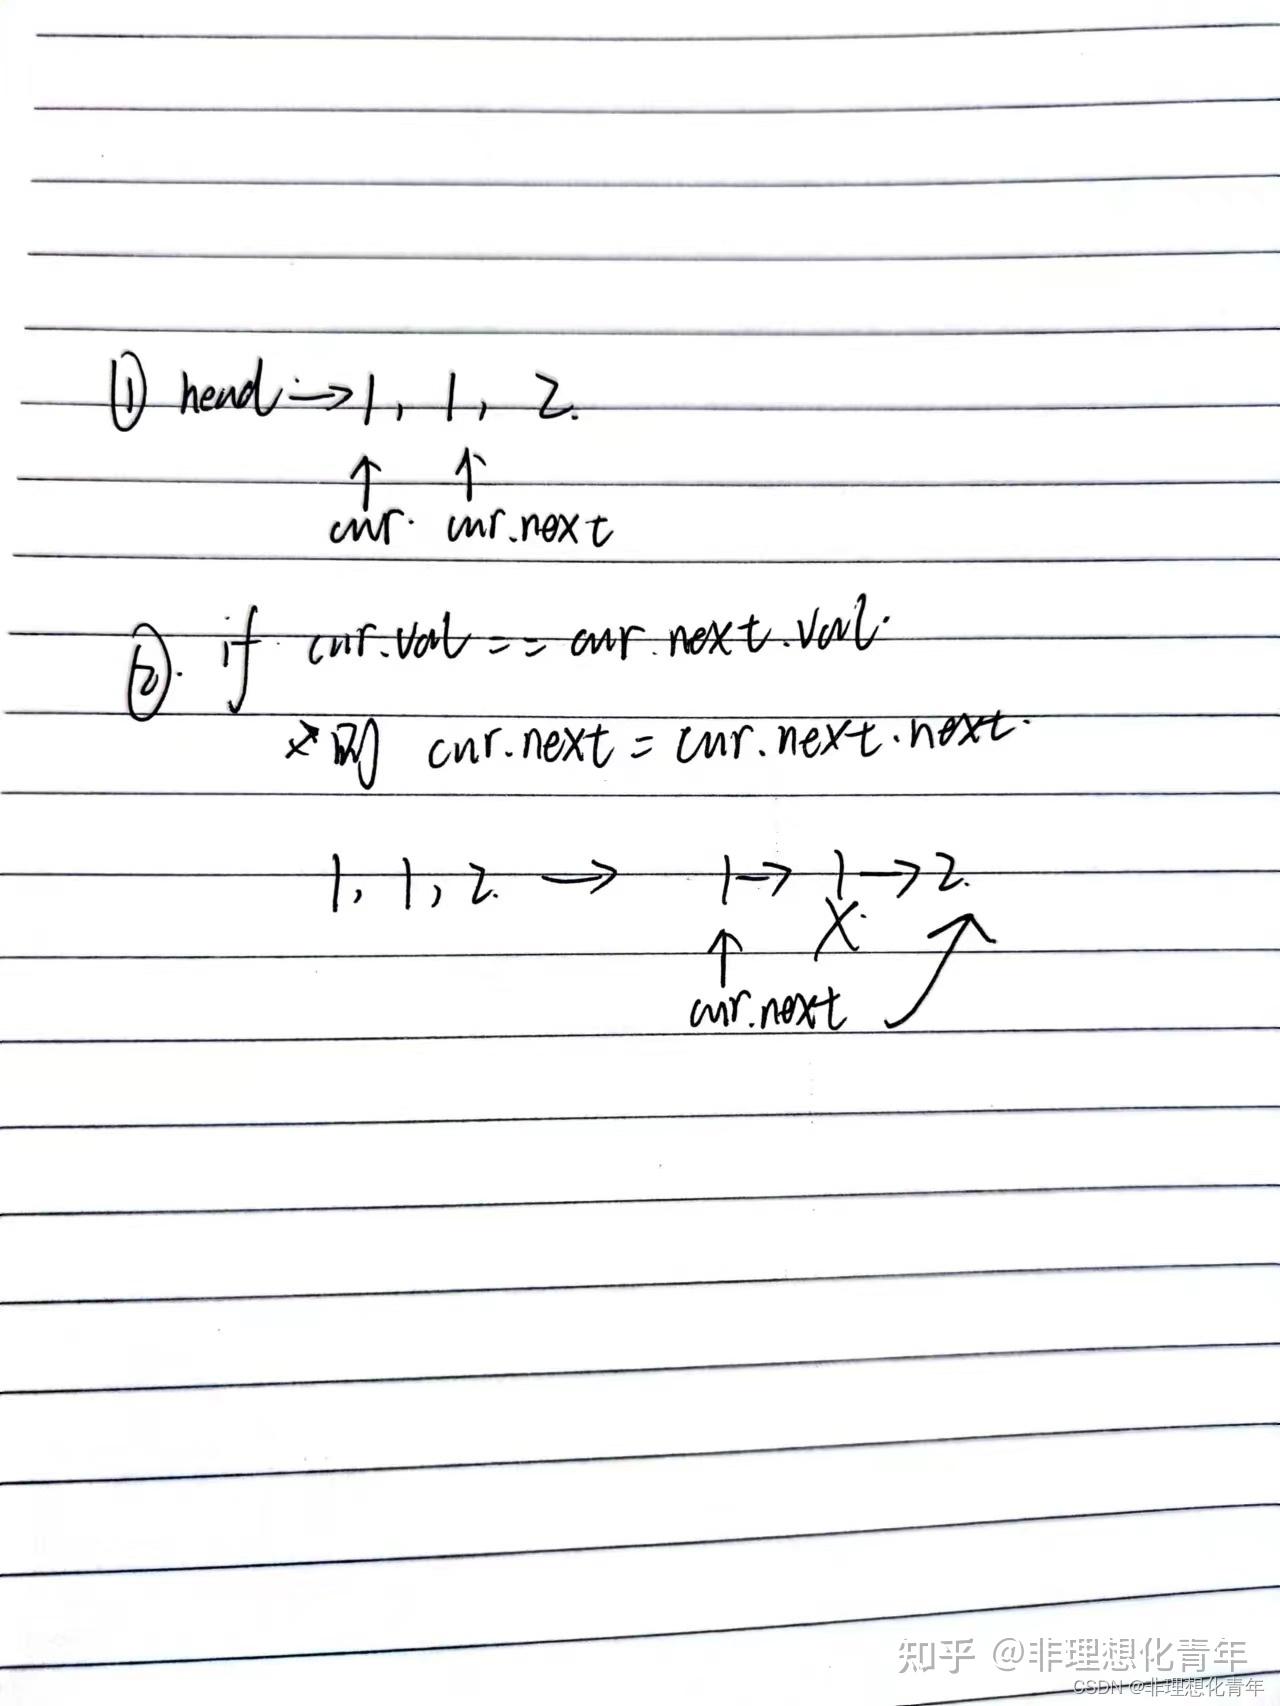 ① head → 1, 1, 2.
↑ ↑
cur. cur.next
②. if cur.val == cur.next.val.
则 cur.next = cur.next.next.
1, 1, 2. → 1 → 1 → 2.
↑ X
cur.next
知乎 @非理想化青年
CSDN @非理想化青年